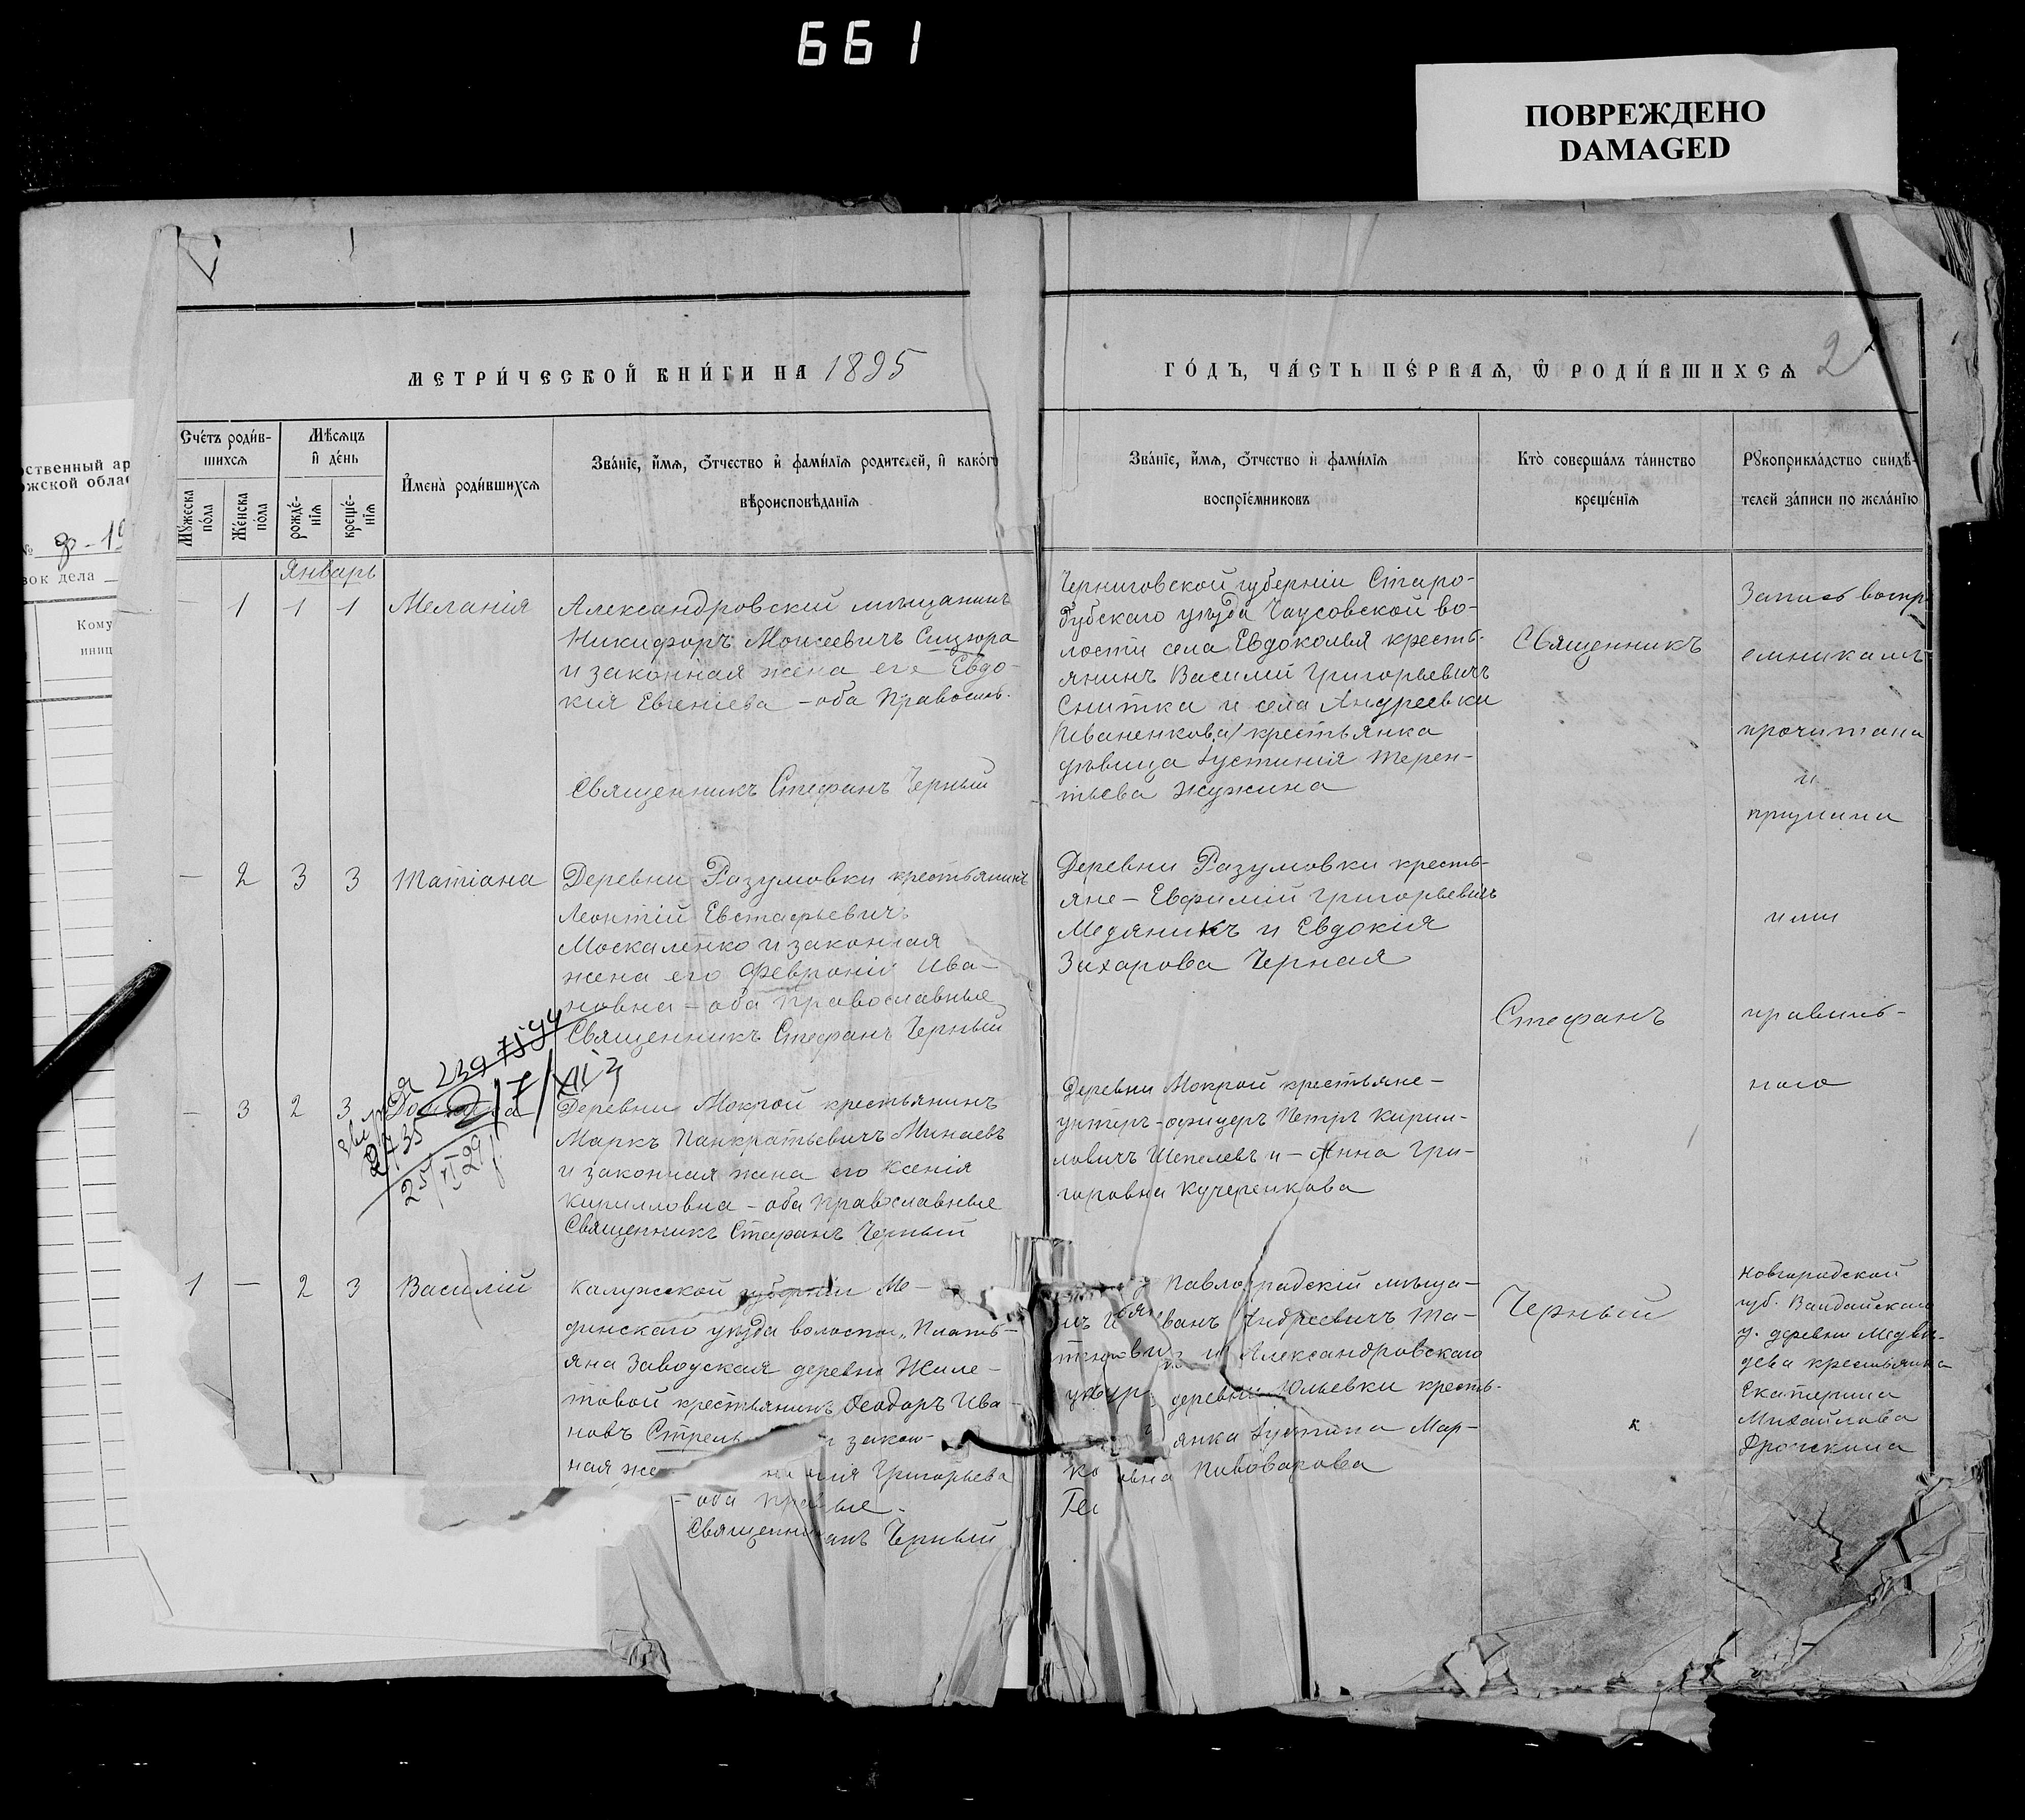 661
ПОВРЕЖДЕНО
DAMAGED
МЕТРИ́ЧЕСКОЙ КНИ́ГИ НА 1895
ГО́ДЪ, ЧА́СТЬ ПЕ́РВАѦ, Ѿ РОДИ́ВШИХСѦ 2
Сче́тъ роди́в-
шихсѧ
Мѣ́сѧцъ
и де́нь
Мꙋ́жеска
по́ла
Же́нска
по́ла
рожде́-
нїѧ
креще́-
нїѧ
Имена̀ роди́вшихсѧ
Зва́нїе, и́мѧ, ѻ́тчество и фами́лїѧ родителей, и како́гѡ
вѣроисповѣ́данїѧ
Зва́нїе, и́мѧ, ѻ́тчество и фами́лїѧ
воспрїе́мниковъ
Кто̀ соверша́лъ та́инство
креще́нїѧ
Рꙋкоприкла́дство свидѣ́-
телей за́писи по жела́нїю
ственный ар
жской облас
Кому
иниц
Январь
— 1 1 1 Меланія
Александровскій мѣщанинъ
Никифоръ Моисеевичъ Сицюра
и законная жена его Евдо-
кія Евгеніева – оба Православ.
Священникъ Стефанъ Черный
Черниговской губерніи Старо-
дубскаго уѣзда Чаусовской во-
лости села Евдоколья кресть-
янинъ Василій Григорьевичъ
Снитка и села Андреевки
/Иваненкова/ крестьянка
дѣвица Іустинія Терен-
тьева Жужина
Священникъ
Запись воспрі
емникамъ
прочитана
и
принята
— 2 3 3 Татіана
Деревни Разумовки крестьянинъ
Леонтій Евстафьевичъ
Москаленко и законная
жена его Февронія Ива-
новна – оба православные
Священникъ Стефанъ Черный
Деревни Разумовки кресть-
яне – Евфимій Григорьевичъ
Медяникъ и Евдокія
Захарова Черная
ими
Стефанъ
правиль-
ною
— 3 2 3
Деревни Мокрой крестьянинъ
Маркъ Панкратьевичъ Минаевъ
и законная жена его Ксенія
Кирилловна – оба православные
Священникъ Стефанъ Черный
Деревни Мокрой крестьяне –
унтеръ-офицеръ Петръ Кирил-
ловичъ Шепелевъ и – Анна Гри-
горовна Кучеренкова
2735
1 — 2 3 Василій
Калужской губерніи Ме-
дынскаго уѣзда волости „Плать-
яна Заводская деревни Жиле-
товой крестьянинъ Ѳеодоръ Ива-
новъ Стрель и закон-
ная же Григорьева
– оба
Священни анъ Черный
Павлоградскій мѣща-
ванъ Андреевичъ Та-
и Александровскаго
деревни Юльевки кресть-
янка Іустина Мар-
ко овна Пивоварова
Черный
Новгородской
губ. Валдайскаго
у. деревни Медвѣ-
дева крестьянка
Екатерина
Михайлова